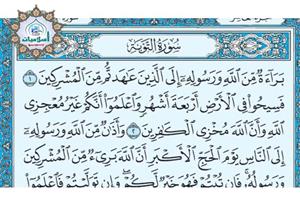 إسلاميات
سُورَةُ التَّوْبَةِ
بَرَآءَةٌ مِّنَ ٱللَّهِ وَرَسُولِهِۦٓ إِلَى ٱلَّذِينَ عَٰهَدتُّم مِّنَ ٱلْمُشْرِكِينَ ١
فَسِيحُوا۟ فِى ٱلْأَرْضِ أَرْبَعَةَ أَشْهُرٍ وَٱعْلَمُوٓا۟ أَنَّكُمْ غَيْرُ مُعْجِزِى
ٱللَّهِ وَأَنَّ ٱللَّهَ مُخْزِى ٱلْكَٰفِرِينَ ٢ وَأَذَٰنٌ مِّنَ ٱللَّهِ وَرَسُولِهِۦٓ
إِلَى ٱلنَّاسِ يَوْمَ ٱلْحَجِّ ٱلْأَكْبَرِ أَنَّ ٱللَّهَ بَرِىٓءٌ مِّنَ ٱلْمُشْرِكِينَ
وَرَسُولُهُۥ فَإِن تُبْتُمْ فَهُوَ خَيْرٌ لَّكُمْ وَإِن تَوَلَّيْتُمْ فَٱعْلَمُوٓا۟